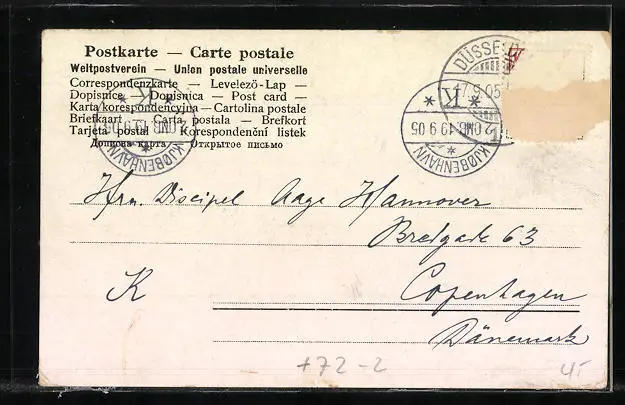 Postkarte — Carte postale
Weltpostverein — Union postale universelle
Correspondenzkarte — Levelező-Lap —
Dopisnice — Dopisnica — Post card —
Karta korespondencyjna — Cartolina postale
Briefkaart — Carta postala — Brefkort
Tarjeta postal — Korespondenční listek
Дописна карта — Открытое письмо
DÜSSEL
7.9.05
K
KJØBENHAVN
2.OMB. 19.9.05
K
2.OMB. 19.9.05
KJØBENHAVN
Hrn. Discipel Aage Hannover
Bredgade 63
K
Copenhagen
Dänemark
+72-2
4,-